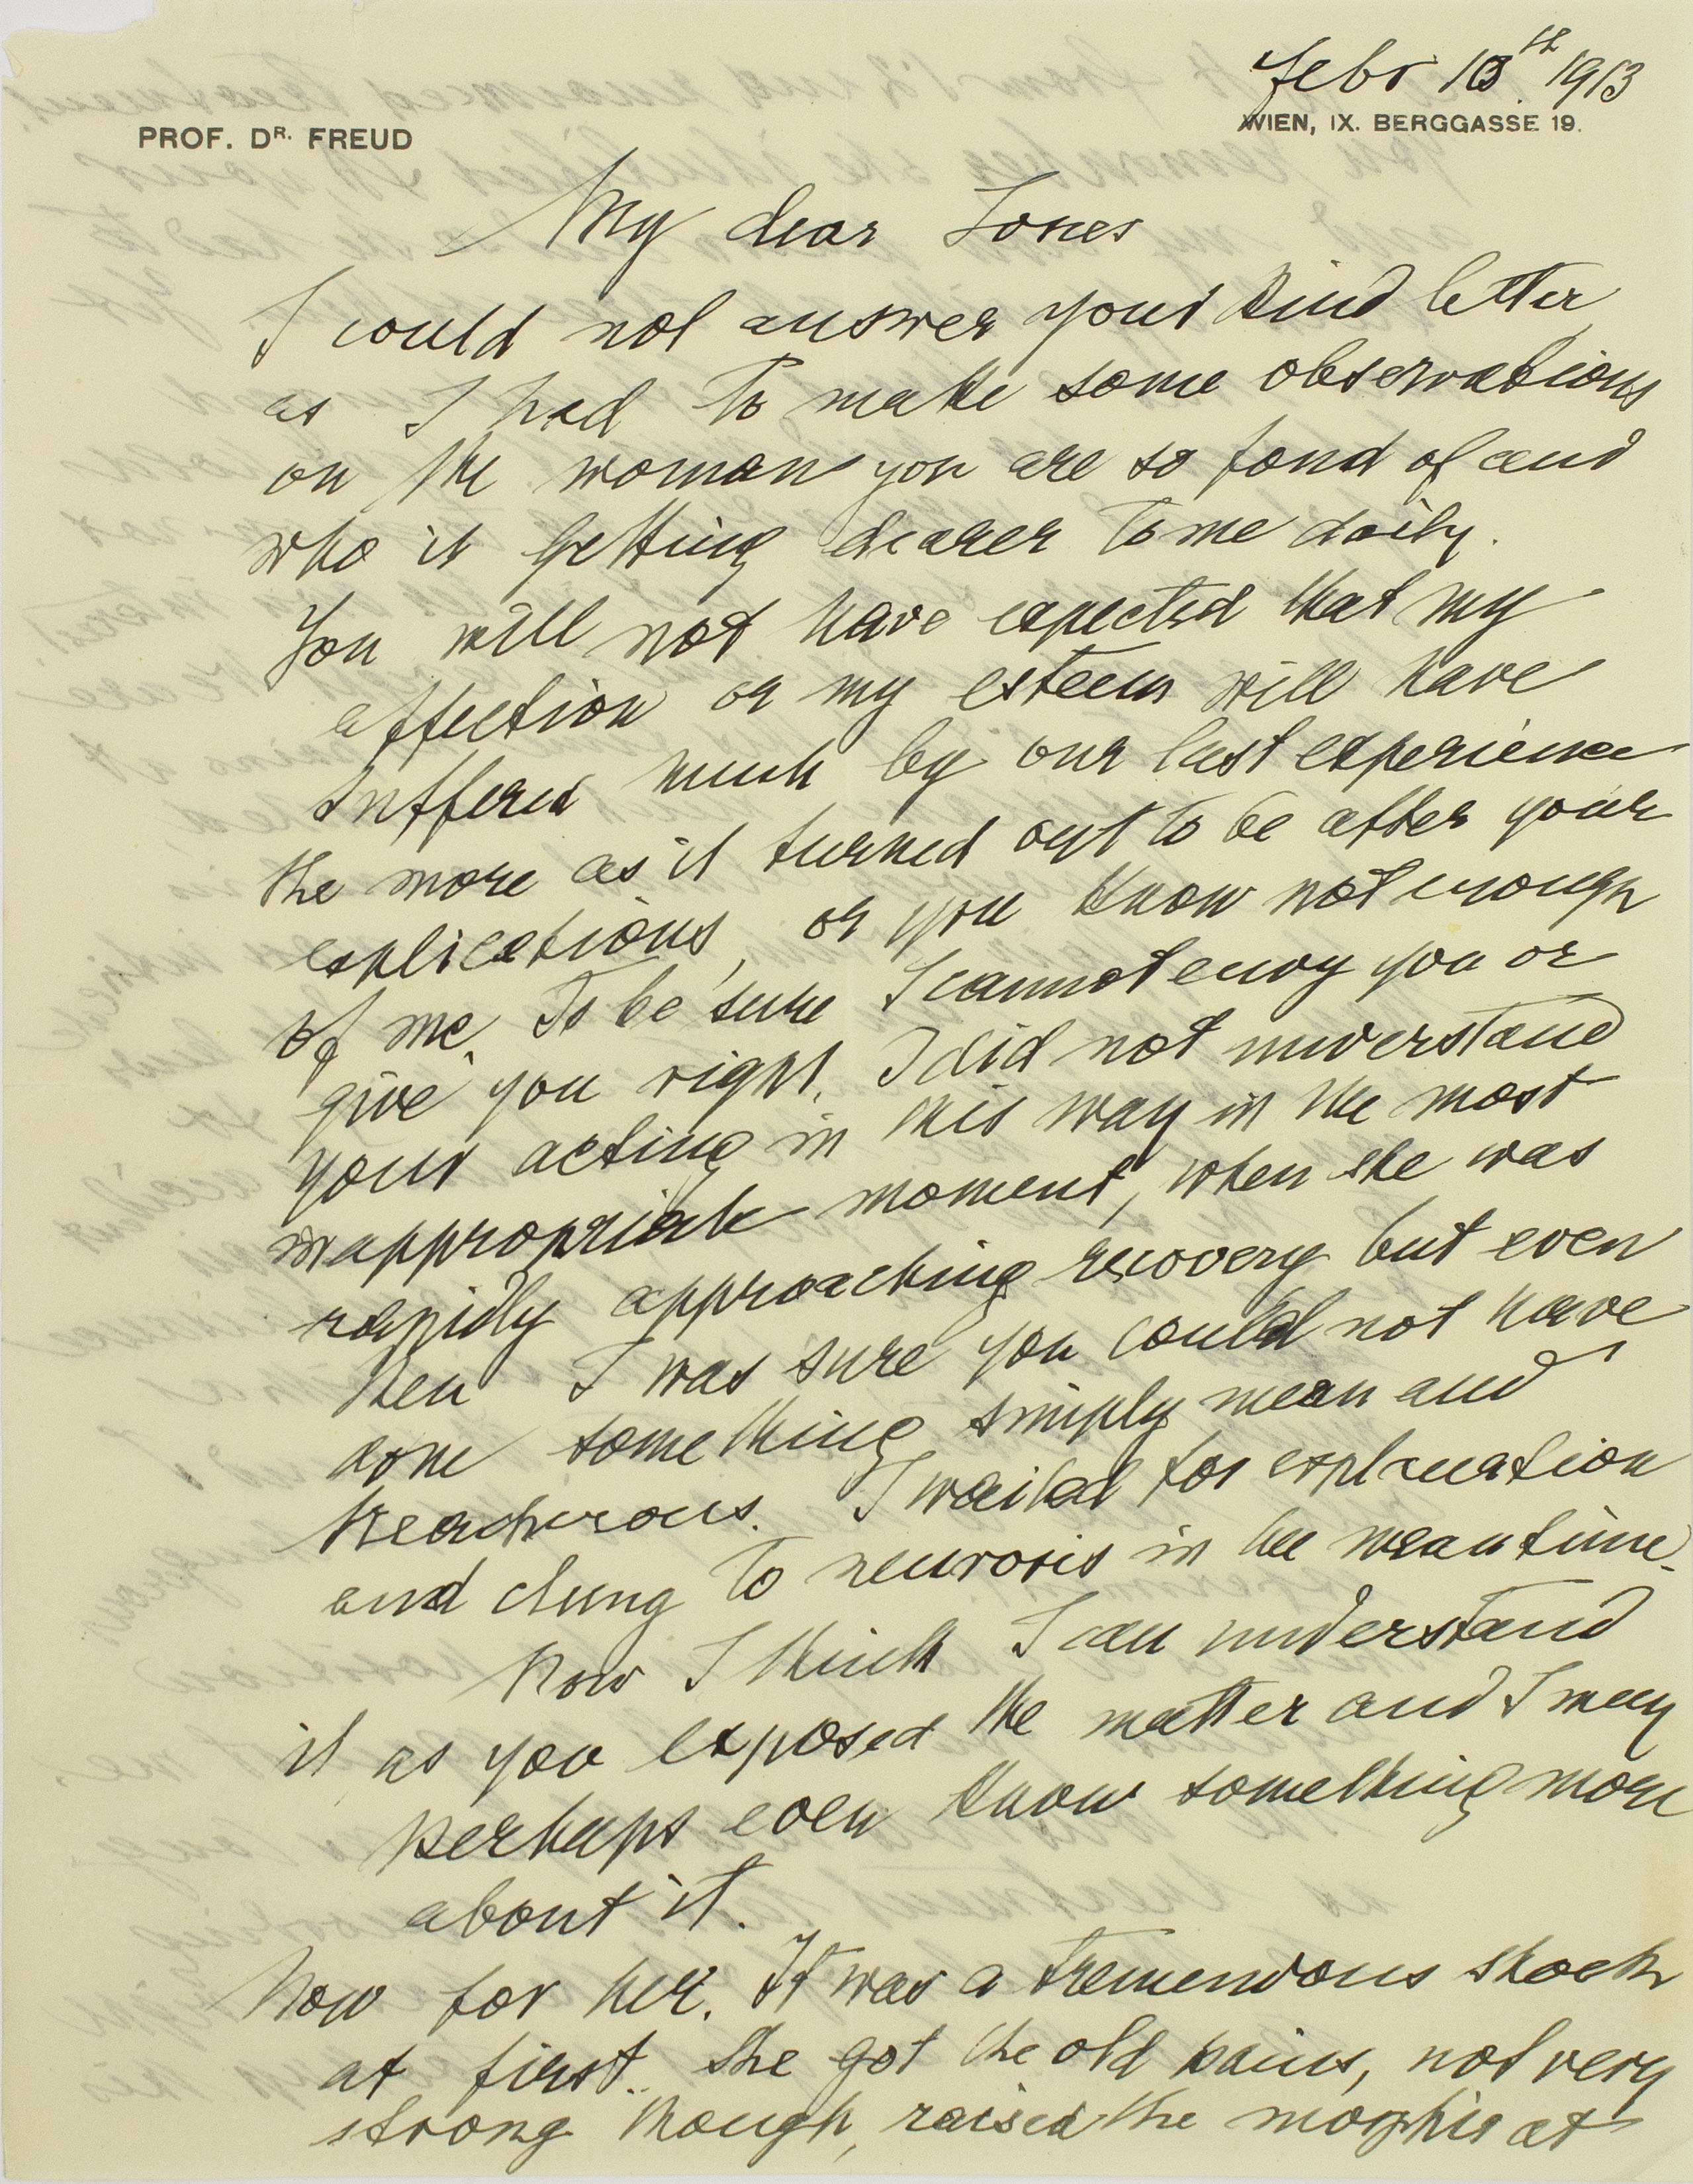 Febr 10th 1913
PROF. DR. FREUD
WIEN, IX. BERGGASSE 19.
My dear Jones
I could not answer your kind letter,
as I had to make some observations
on the woman you are so fond of and
who is getting dearer to me daily.
You will not have expected that my
affection or my esteem will have
suffered much by our last experience
the more as it turned out to be after your
explications, or you know not enough
of me. To be sure I cannot envy you or
give you right. I did not understand
your acting in this way in the most
inappropriate moment, when she was
rapidly approaching recovery but even
then I was sure you could not have
done something simply mean and
treacherous. I waited for explanation
and clung to neurosis in the meantime.
Now I think I can understand
it as you exposed the matter and I may
perhaps even know something more
about it.
Now for her. It was a tremendous shock
at first. She got the old pains, not very
strong though, raised the morphia at